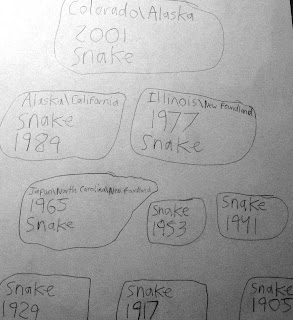 Colorado\Alaska
2001
Snake
Alaska\California
Snake
1989
Illinois\New Foundland
1977
Snake
Japan\North Carolina\New Foundland
1965
Snake
Snake
1953
Snake
1941
Snake
1929
Snake
1917
Snake
1905